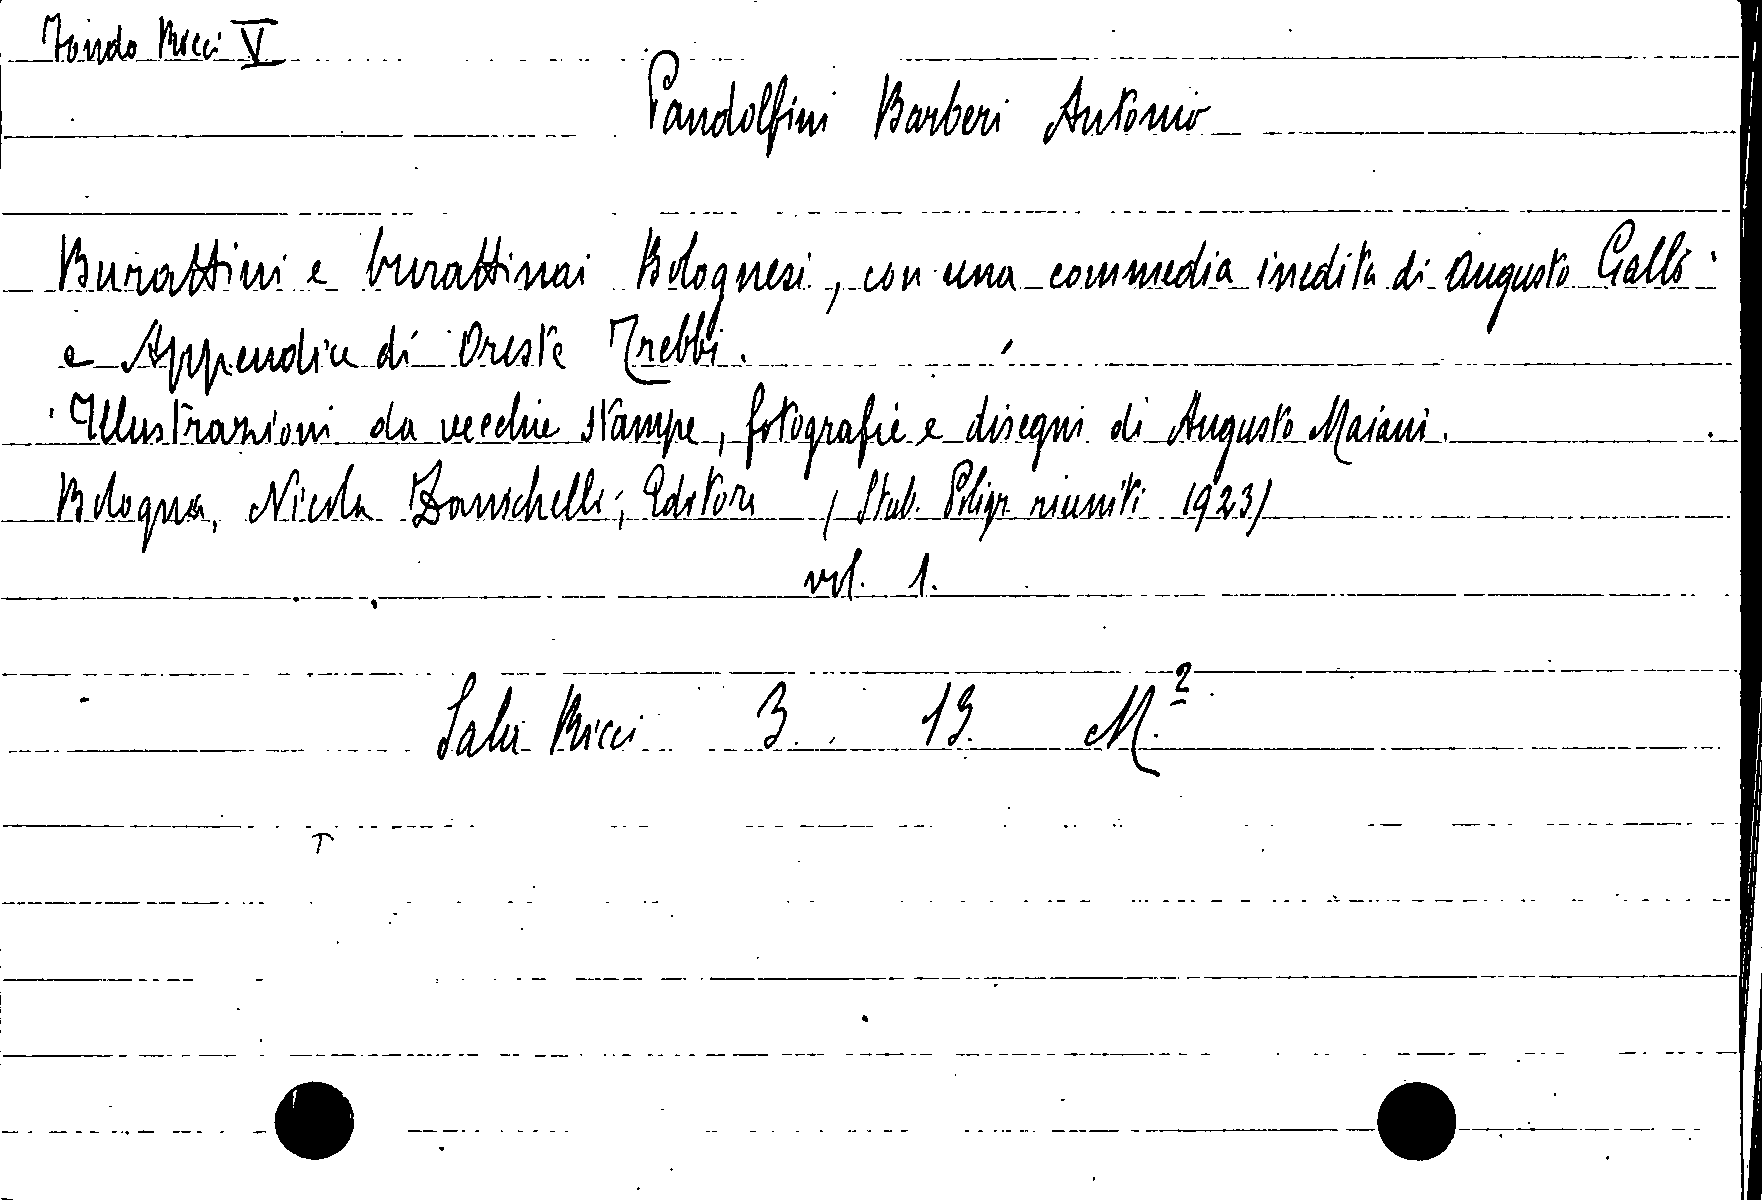 Fondo Ricci V
Pandolfini Barberi Antonio
Burattini e burattinai Bolognesi, con una commedia inedita di Augusto Galli
e Appendice di Oreste Trebbi.
Illustrazioni da vecchie stampe, fotografie e disegni di Augusto Maiani.
Bologna, Nicola Zanichelli, Editore (Stab. Poligr. riuniti 1923)
vol. 1.
Sala Ricci 3. 13. M.²